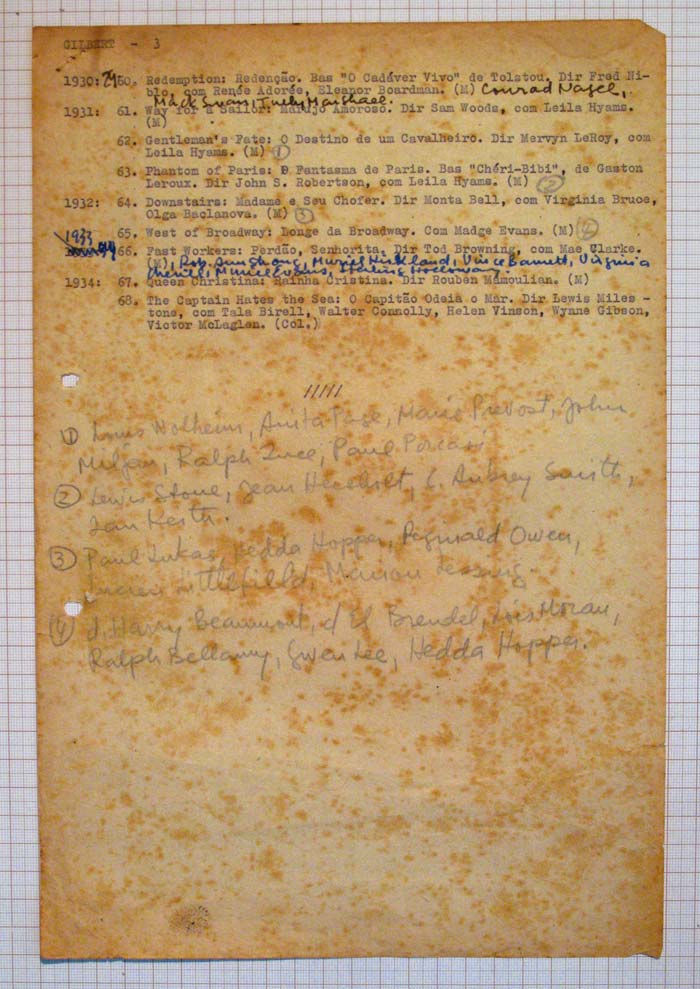 GILBERT - 3
1930: 29 60. Redemption: Redenção. Bas "O Cadáver Vivo" de Tolstou. Dir Fred Ni-
blo, com Renée Adorée, Eleanor Boardman. (M) Conrad Nagel,
Mack Swan, Tully Marshael.
1931: 61. Way for a Sailor: Marujo Amoroso. Dir Sam Woods, com Leila Hyams.
(M)
62. Gentleman's Fate: O Destino de um Cavalheiro. Dir Mervyn LeRoy, com
Leila Hyams. (M) 1
63. Phantom of Paris: O Fantasma de Paris. Bas "Chéri-Bibi", de Gaston
Leroux. Dir John S. Robertson, com Leila Hyams. (M) 2
1932: 64. Downstairs: Madame e Seu Chofer. Dir Monta Bell, com Virginia Bruce,
Olga Baclanova. (M) 3
65. West of Broadway: Longe da Broadway. Com Madge Evans. (M) 4
1933
66. Fast Workers: Perdão, Senhorita. Dir Tod Browning, com Mae Clarke.
(M), Rob. Armstrong, Muriel Kirkland, Vince Barnett, Virginia
Cherill, Muriel Evans, Sterling Holloway.
1934: 67. Queen Christina: Rainha Cristina. Dir Rouben Mamoulian. (M)
68. The Captain Hates the Sea: O Capitão Odeia o Mar. Dir Lewis Miles -
tone, com Tala Birell, Walter Connolly, Helen Vinson, Wynne Gibson,
Victor McLaglen. (Col.)
/////
1 Louis Wolheim, Anita Page, Marie Prevost, John
Miljan, Ralph Ince, Paul Porcasi
2 Lewis Stone, Jean Hersholt, C. Aubrey Smith,
Ian Keith.
3 Paul Lukas, Hedda Hopper, Reginald Owen,
Lucien Littlefield, Marion Lessing.
4 d. Harry Beaumont, c/ El Brendel, Lois Moran,
Ralph Bellamy, Gwen Lee, Hedda Hopper.